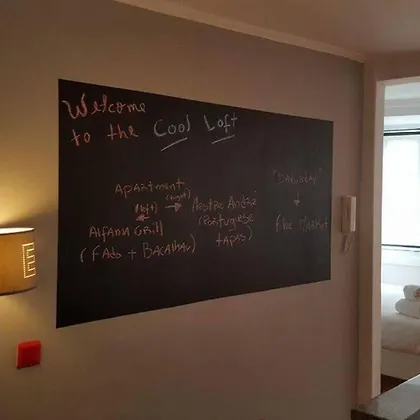 Welcome
to the Cool Loft
Apartment
(left) (right)
Alfama Grill
(Fado + Bacalhau)
Mestre André
(Portugese
tapas)
flea Market